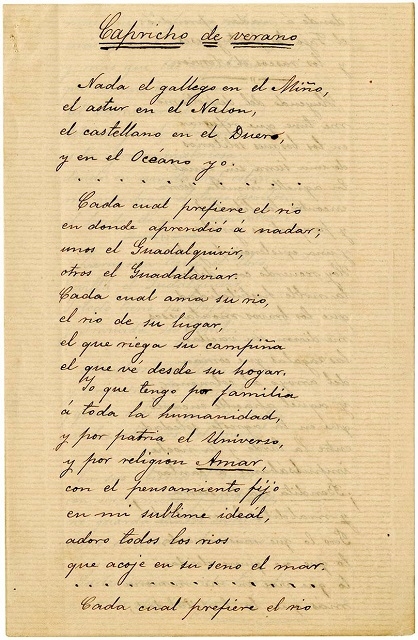 Capricho de verano
Nada el gallego en el Miño,
el astur en el Nalon,
el castellano en el Duero,
y en el Océano yo.
. . . . . . . . . . .
Cada cual prefiere el rio
en donde aprendió á nadar;
unos el Guadalquivir,
otros el Guadalaviar.
Cada cual ama su rio,
el rio de su lugar,
el que riega su campiña
el que vé desde su hogar.
Yo que tengo por familia
á toda la humanidad,
y por patria el Universo,
y por religion Amar,
con el pensamiento fijo
en mi sublime ideál,
adoro todos los rios
que acoje en su seno el mar.
. . . . . . . . . . . . . . .
Cada cual prefiere el rio